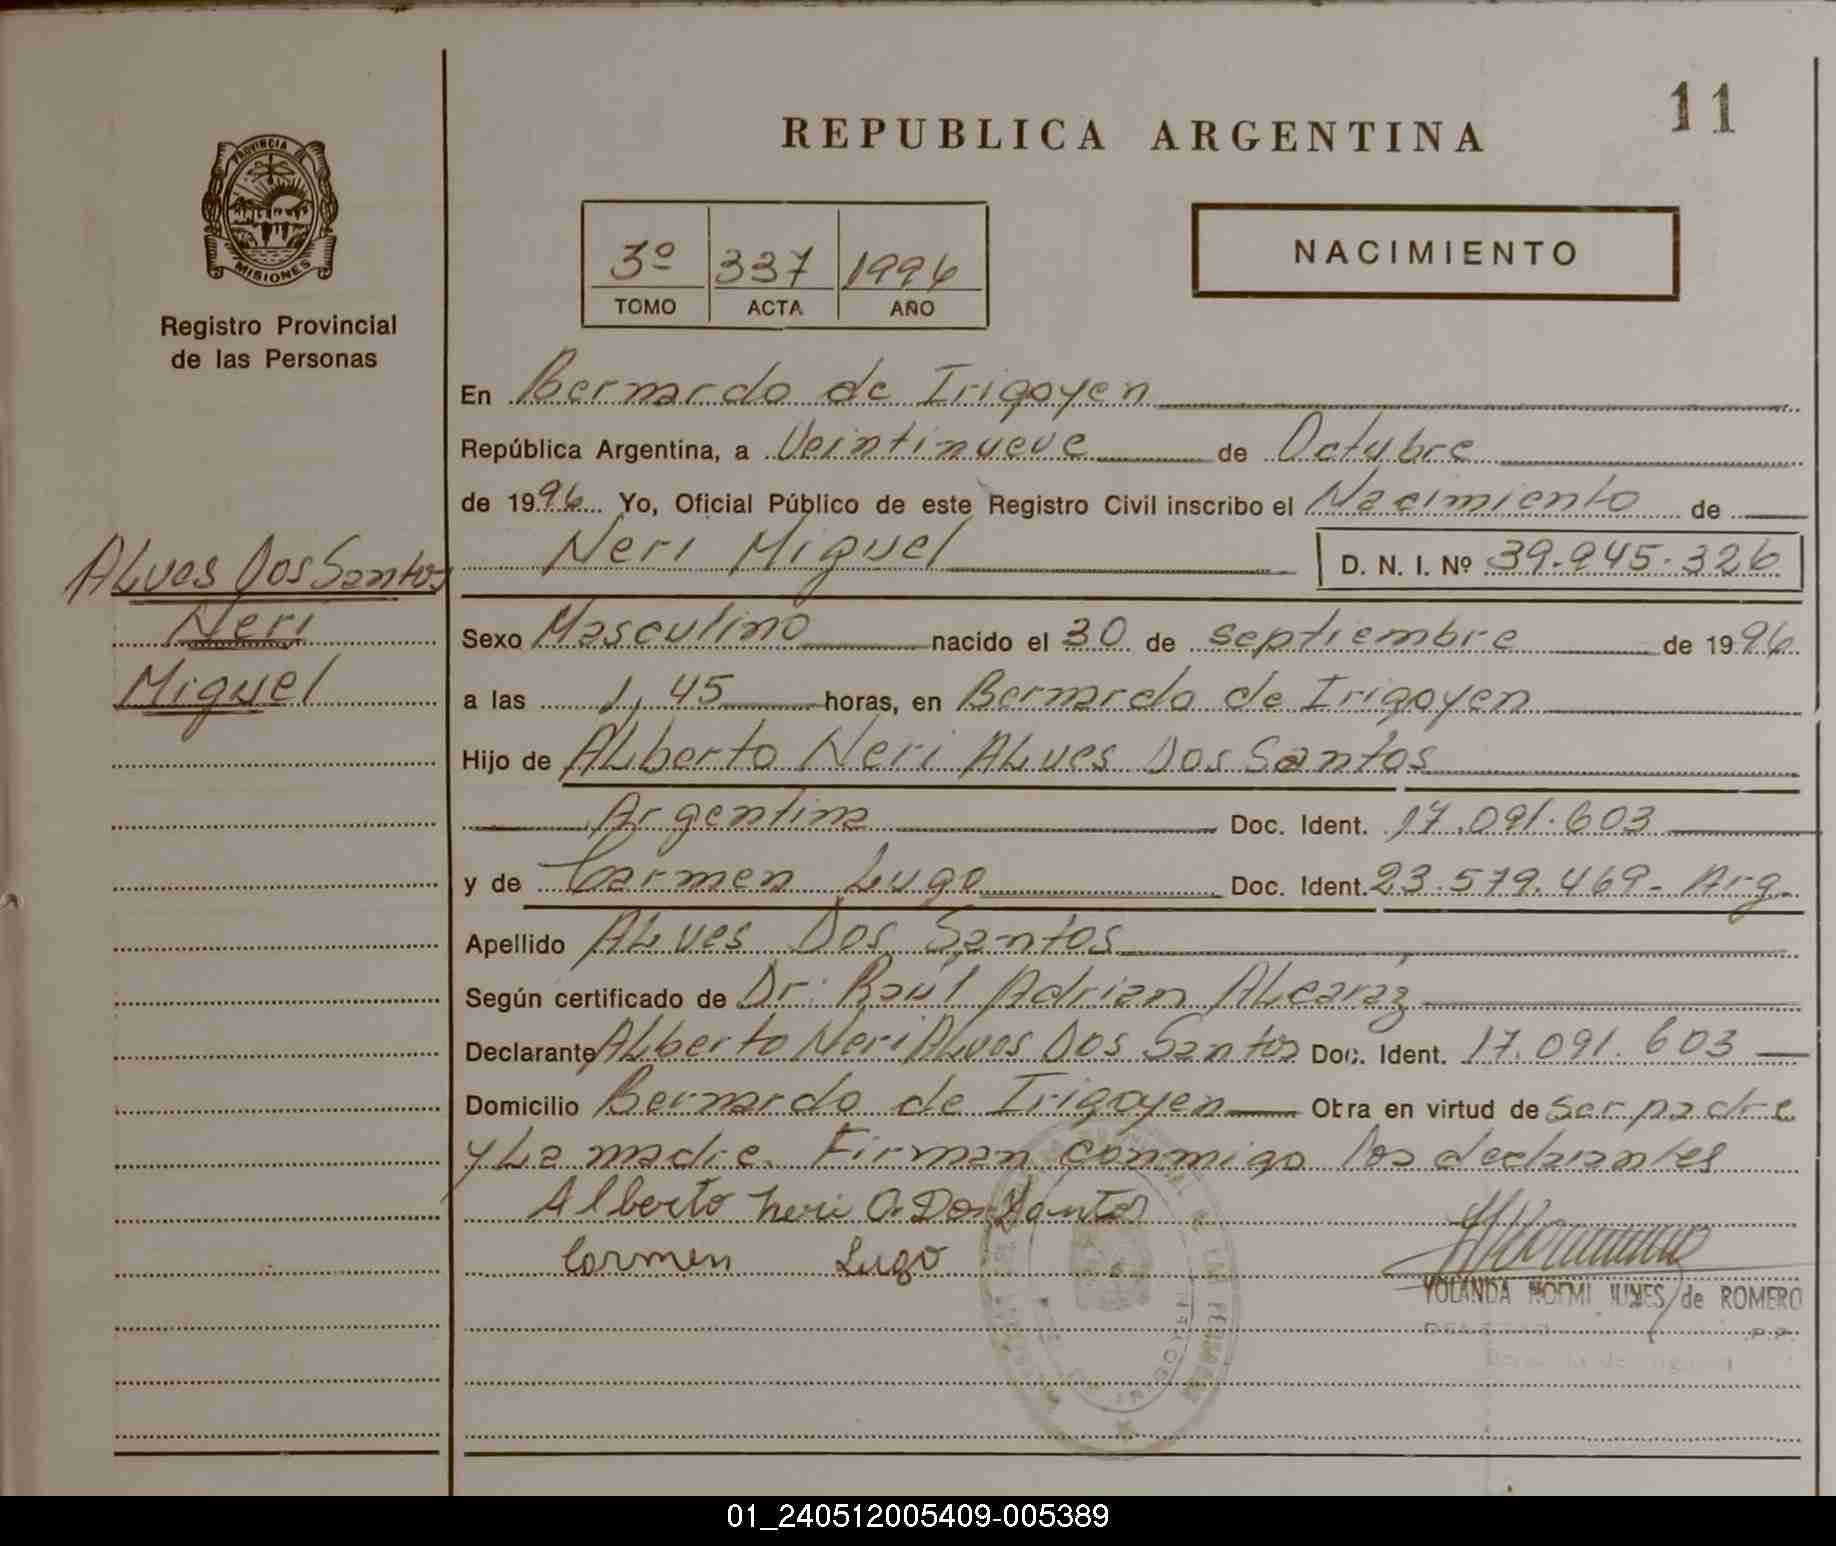 11
REPUBLICA ARGENTINA
PROVINCIA DE
MISIONES
Registro Provincial
de las Personas
3º 337 1996
TOMO ACTA AÑO
NACIMIENTO
En Bernardo de Irigoyen
República Argentina, a Veintinueve de Octubre
de 1996 Yo, Oficial Público de este Registro Civil inscribo el Nacimiento de
Neri Miguel D. N. I. Nº 39.945.326
ALves Dos Santos
Neri
Miguel
Sexo Masculino nacido el 30 de septiembre de 1996
a las 1,45 horas, en Bernardo de Irigoyen
Hijo de ALberto Neri ALves Dos Santos
Argentina Doc. Ident. 17.091.603
y de Carmen Lugo Doc. Ident. 23.579.469- Arg.
Apellido ALves Dos Santos
Según certificado de Dr: Raúl Adrian ALcaráz
Declarante ALberto Neri ALves Dos Santos Doc. Ident. 17.091.603
Domicilio Bernardo de Irigoyen Obra en virtud de ser padre
y La madre. Firman conmigo los declarantes
Alberto Neri A. Dos Santos
Carmen Lugo
YOLANDA NOEMI de ROMERO
01_240512005409-005389